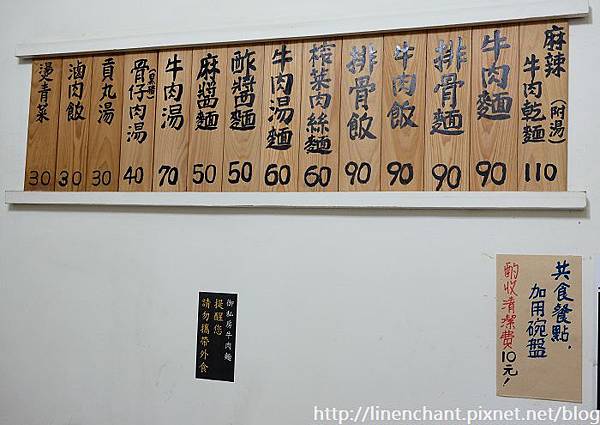 麻辣牛肉乾麵(附湯) 110
牛肉麵 90
排骨麵 90
牛肉飯 90
排骨飯 90
榨菜肉絲麵 60
牛肉湯麵 60
酢醬麵 50
麻醬麵 50
牛肉湯 70
骨仔肉湯 40
貢丸湯 30
滷肉飯 30
燙青菜 30
御私房牛肉麵
提醒您
請勿攜帶外食
共食餐點,
加用碗盤
酌收清潔費10元!
http://linenchant.pixnet.net/blog